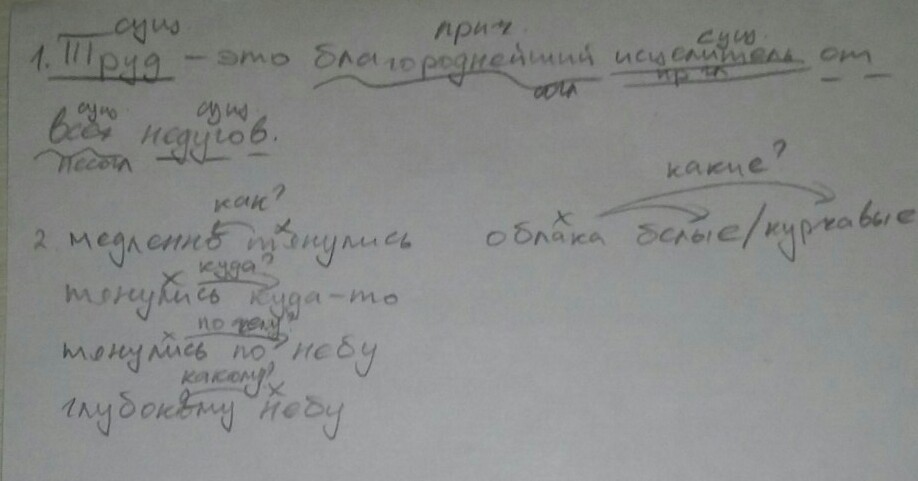 сущ прич сущ
1. Труд – это благороднейший исцелитель от
согл прил
сущ сущ
всех недугов.
несогл
как? какие?
2. медленно тянулись облака белые/курчавые
куда?
тянулись куда-то
по чему?
тянулись по небу
какому?
глубокому небу